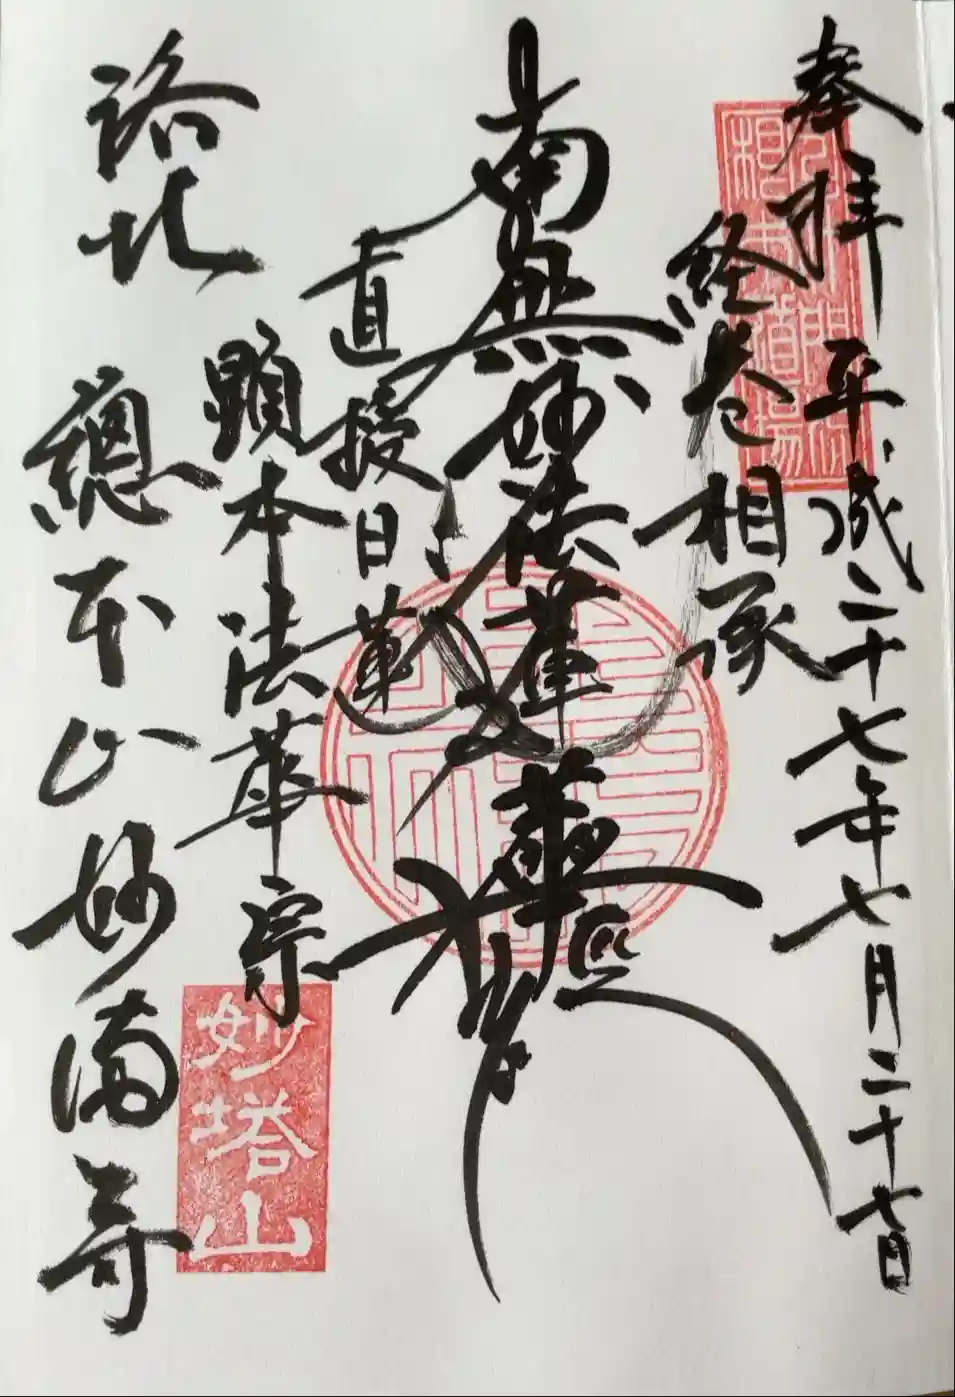 奉拝 平成二十七年七月二十七日
経巻相承
南無妙法蓮華経
直授日蓮
顕本法華宗
洛北 總本山 妙満寺
妙塔山